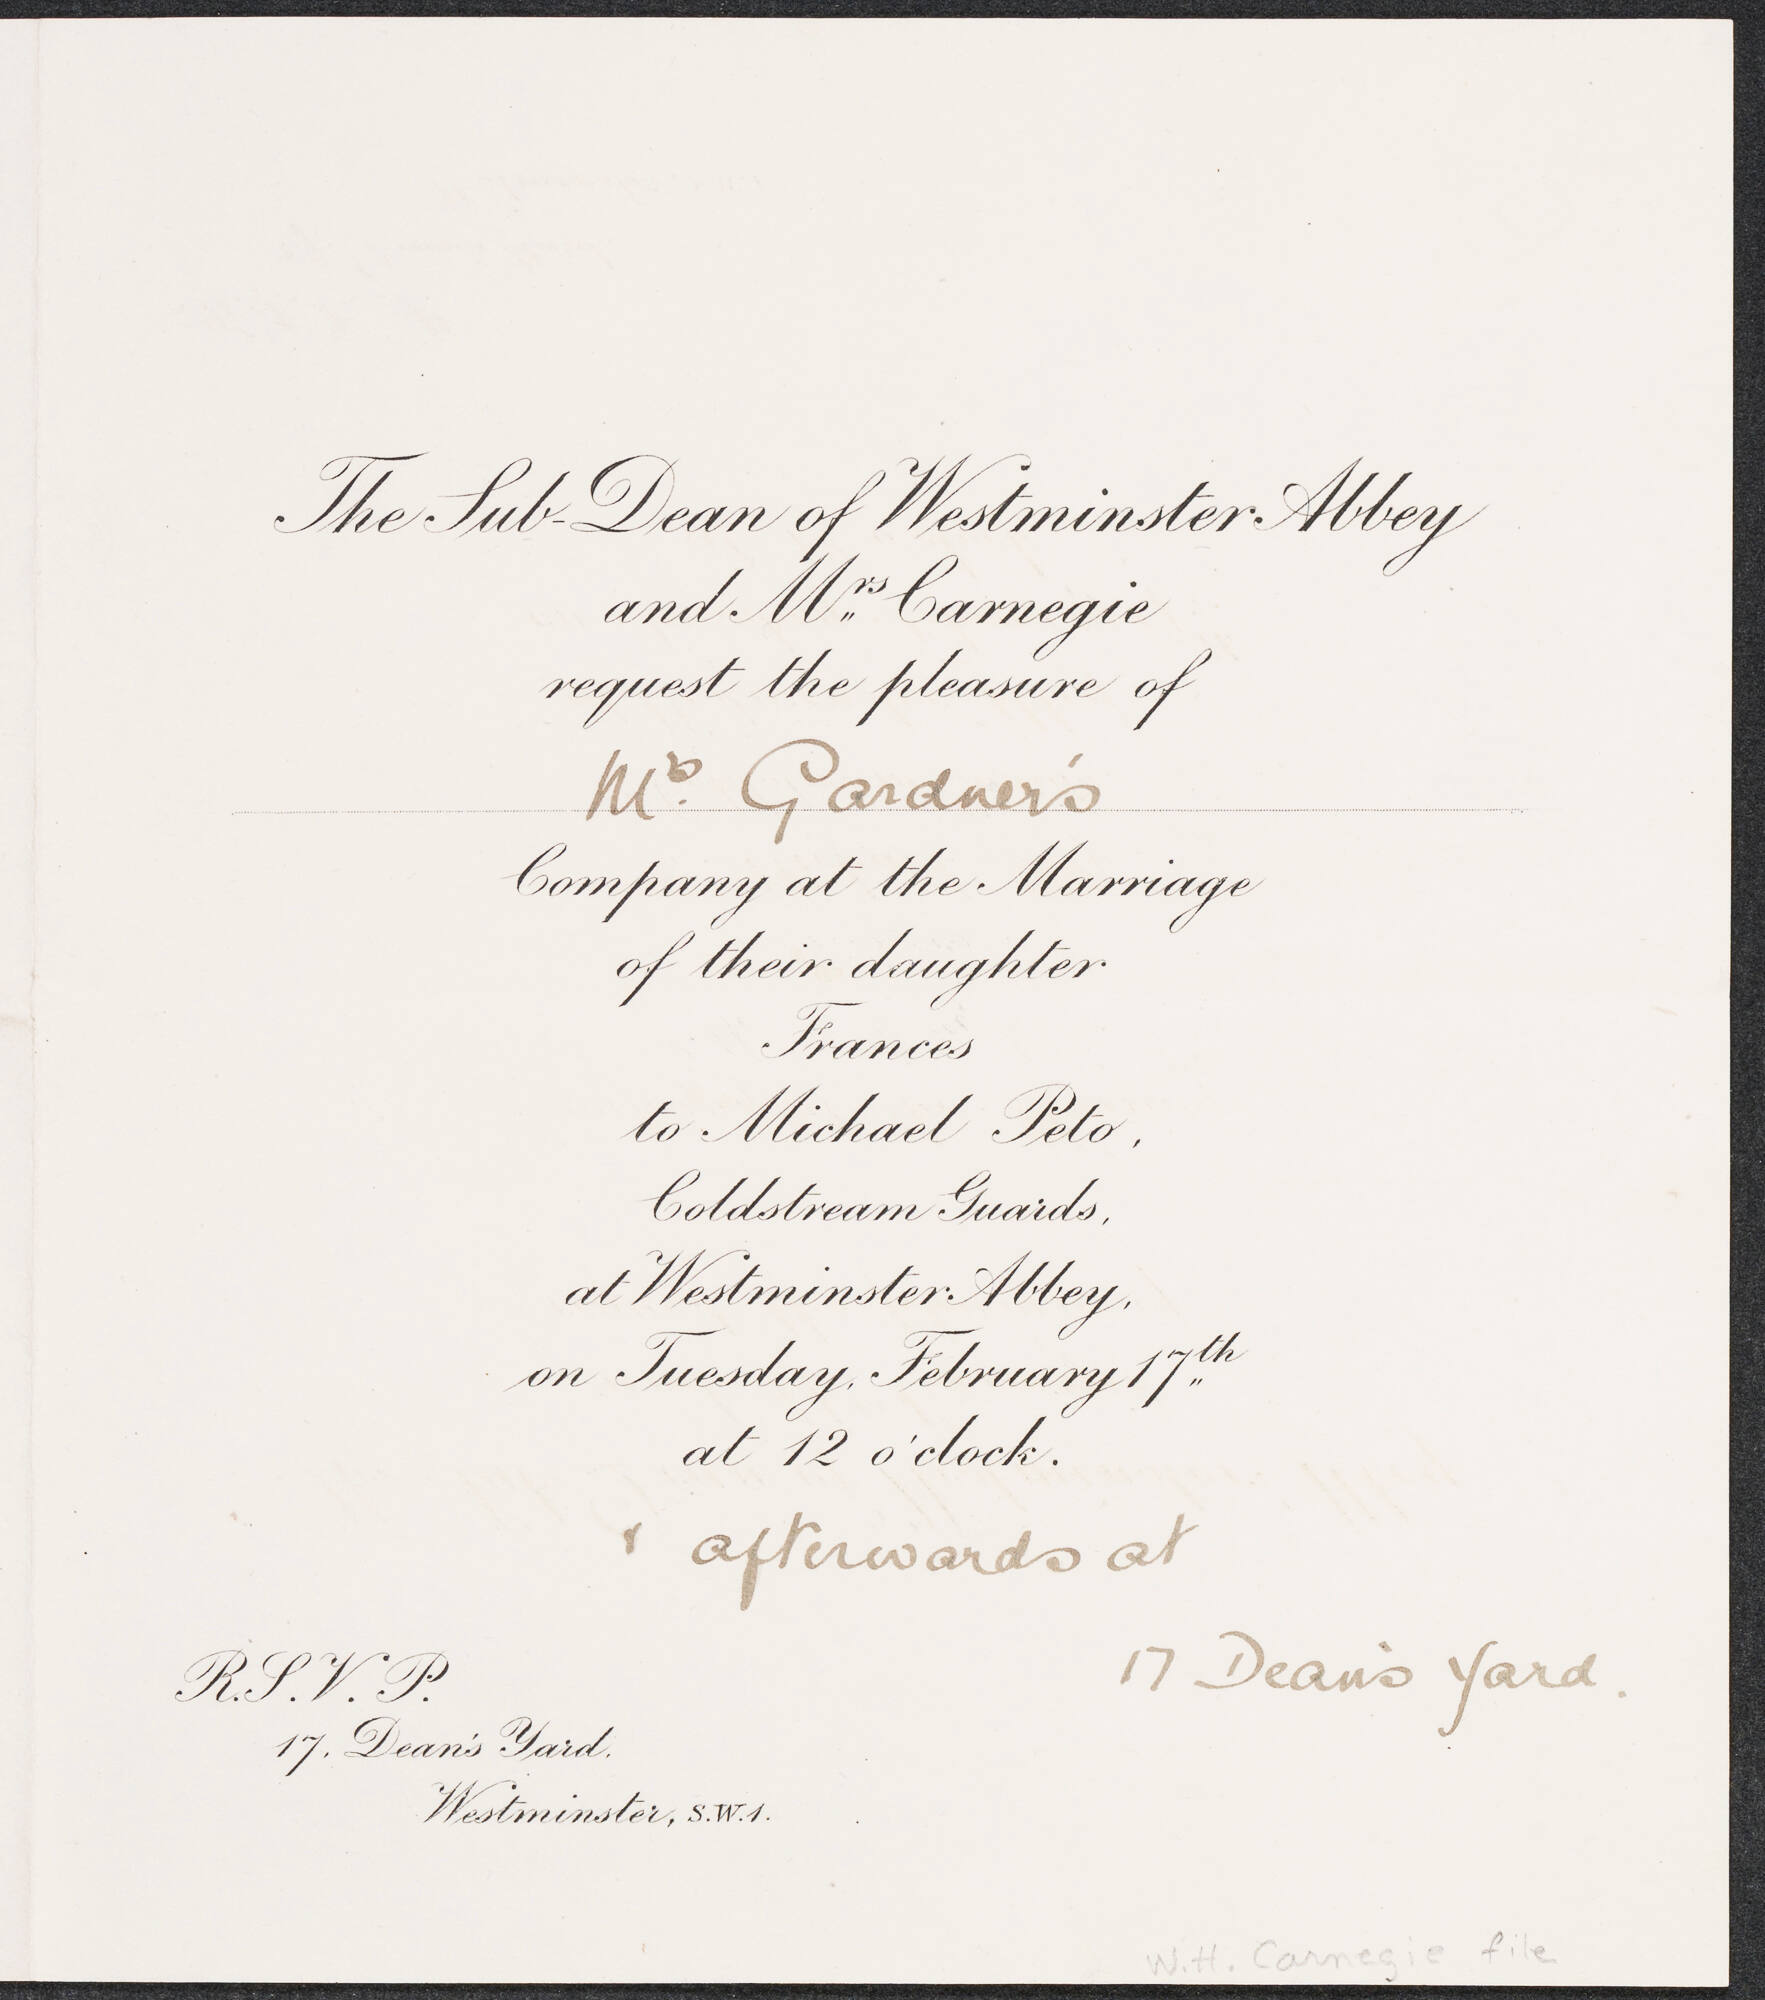 The Sub-Dean of Westminster Abbey
and Mrs Carnegie
request the pleasure of
Mrs. Gardner's
Company at the Marriage
of their daughter
Frances
to Michael Peto,
Coldstream Guards,
at Westminster Abbey,
on Tuesday, February 17th
at 12 o'clock.
& afterwards at
17 Dean's Yard.
R.S.V.P.
17, Dean's Yard,
Westminster, S.W.1.
W.H. Carnegie file